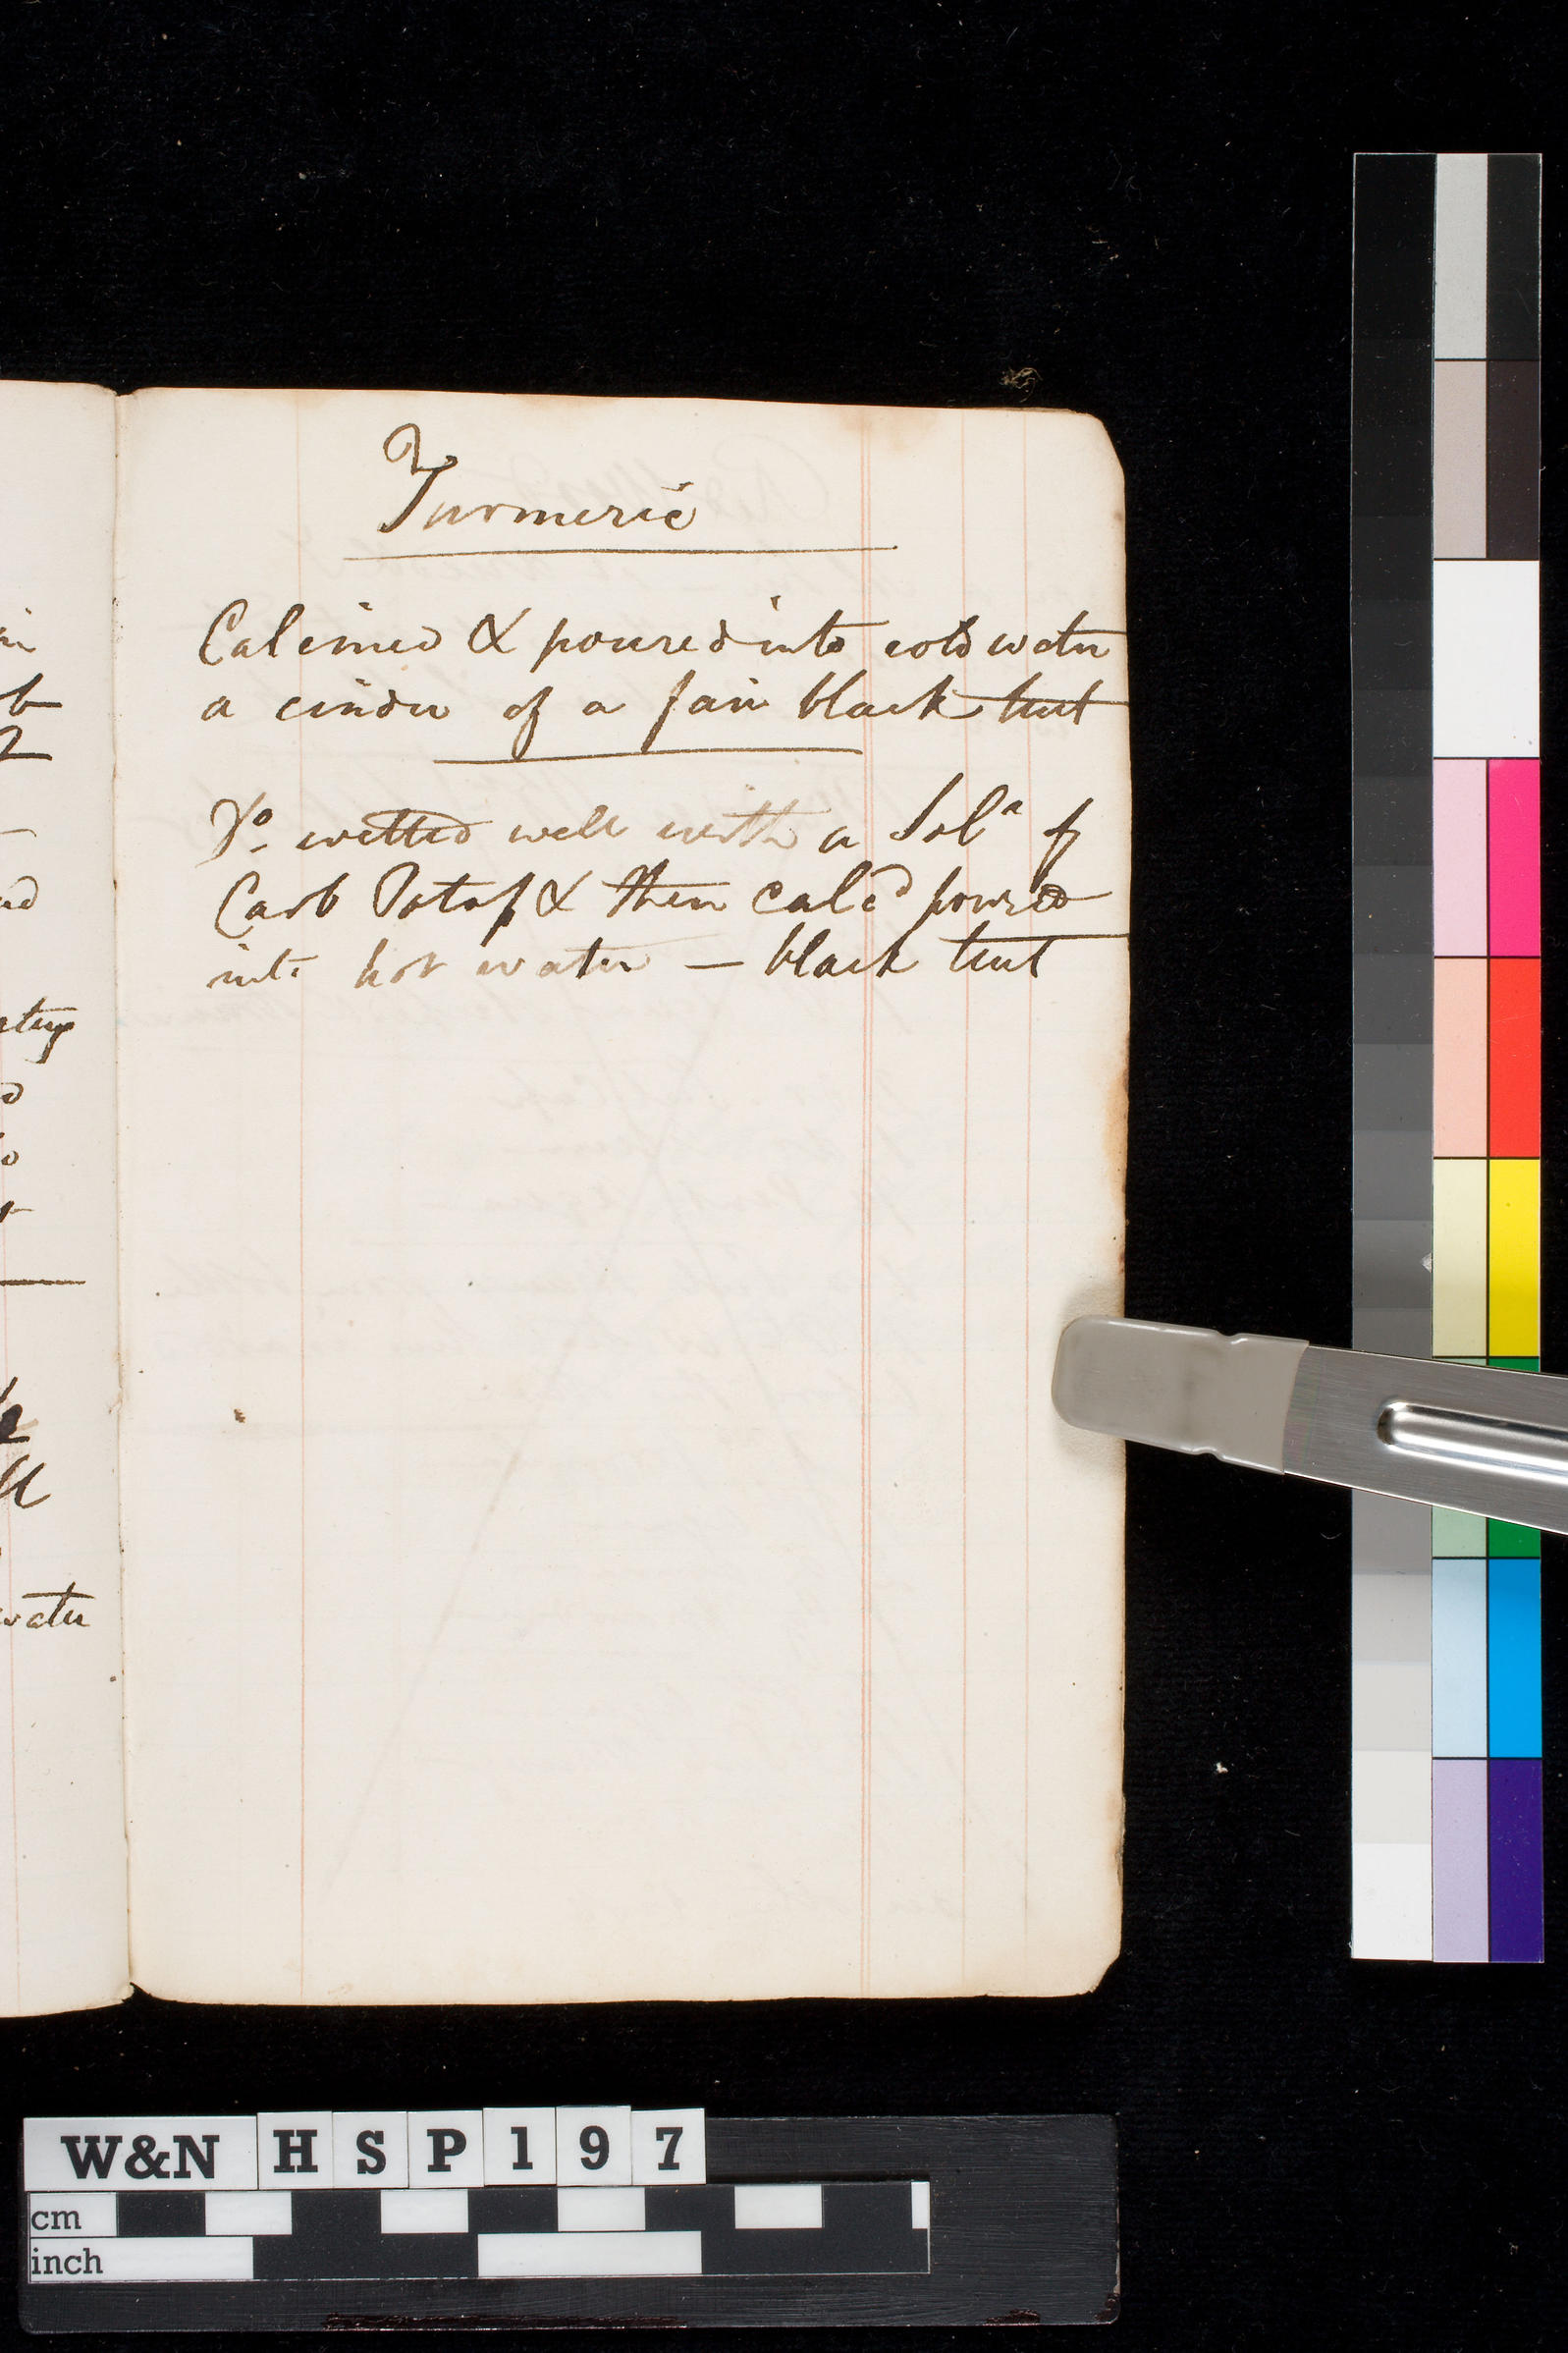 Turmeric
Calcined & poured into cold water
a cinder of a fair black tint
Do. wetted well with a Soln of
Carb Potass & then calcd poured
into hot water — black tint
water
W&N HSP197
cm
inch